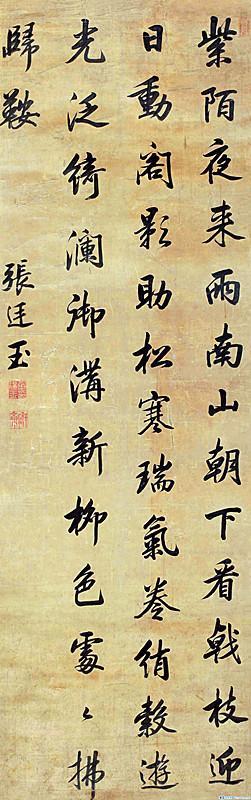 紫陌夜来雨南山朝下看戟枝迎
日動閣影助松寒瑞氣卷綃縠遊
光泛綺瀾御溝新柳色處々拂
歸鞍
張廷玉